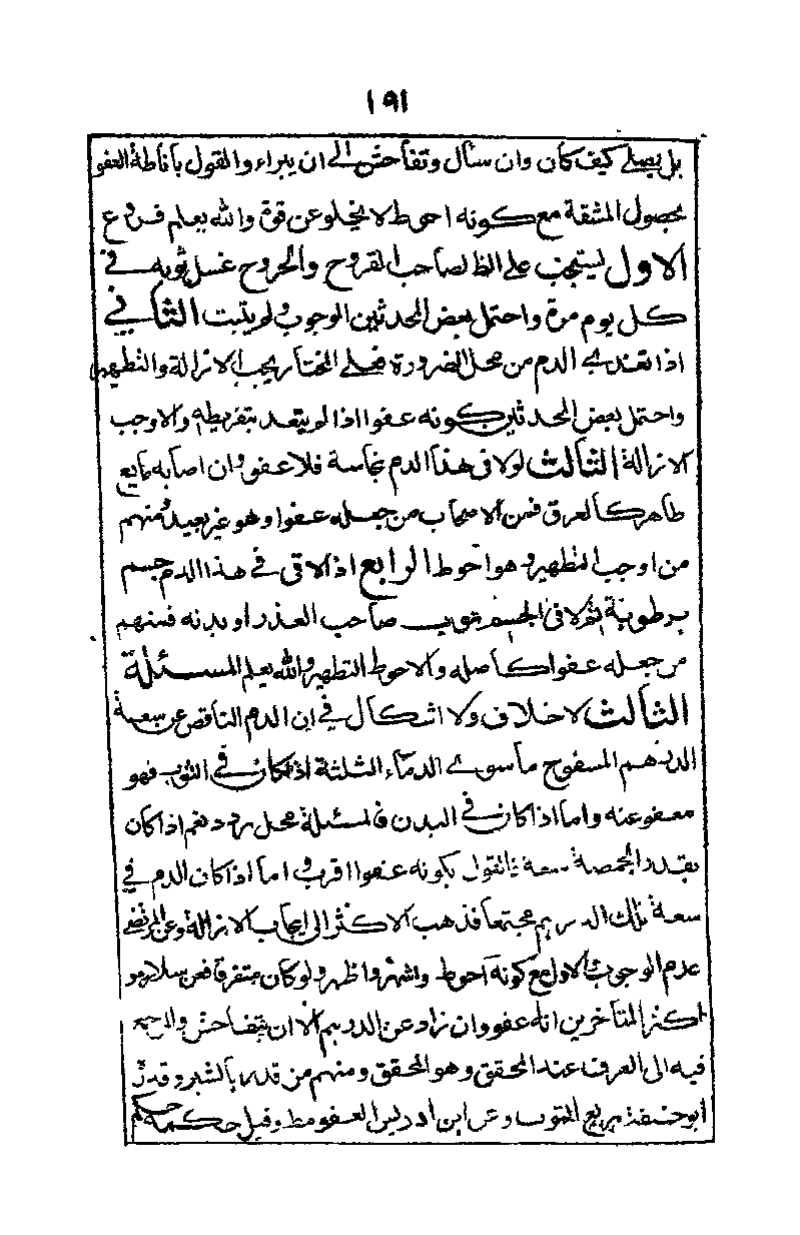 ١٩١
بل يصلي كيف كان وان سال وتفاحش الى ان يبراء والقول باناطة العفو
بحصول المشقة مع كونه احوط لا يخلو عن قوة والله يعلم فروع
الاول يستحب على الظ لصاحب القروح والجروح غسل ثوبه في
كل يوم مرة واحتمل بعض المحدثين الوجوب ولم يثبت الثاني
اذا تعدى الدم من محل الضرورة فعلى المختار يجب الازالة والتطهير
واحتمل بعض المحدثين كونه عفوا اذا لم يتعد بتفريطه والاوجب
الازالة الثالث لو لاقى هذا الدم نجاسة فلا عفو وان اصابه مايع
طاهر كالعرق فمن الاصحاب من جعله عفوا وهو غير بعيد ومنهم
من اوجب التطهير وهو احوط الرابع اذا لاقى في هذا الدم جسم
برطوبة ثم لاقى الجسم ثوب صاحب العذر او بدنه فمنهم
من جعله عفوا كاصله والاحوط التطهير والله يعلم المسئلة
الثالث لا خلاف ولا اشكال في ان الدم الناقص عن سعة
الدرهم المسفوح ما سوى الدماء الثلثة اذا كان في الثوب فهو
معفو عنه واما اذا كان في البدن فالمسئلة محل تردد نعم اذا كان
بقدر الحمصة سعة فالقول بكونه عفوا اقرب واما اذا كان الدم في
سعة تلك الدرهم مجتمعا فذهب الاكثر الى ايجاب الازالة وعن المرتضى
عدم الوجوب والاول مع كونه احوط واشهر واظهر ولو كان متفرقا فعن سلار مو
اكثر المتاخرين انه عفو وان زاد عن الدرهم الا ان يتفاحش والمرجع
فيه الى العرف عند المحقق وهو المحقق ومنهم من قدره بالشبر وقدره
ابو حنيفة بربع الثوب وعن ابن ادريس العفو مط وقيل حكمه حكم